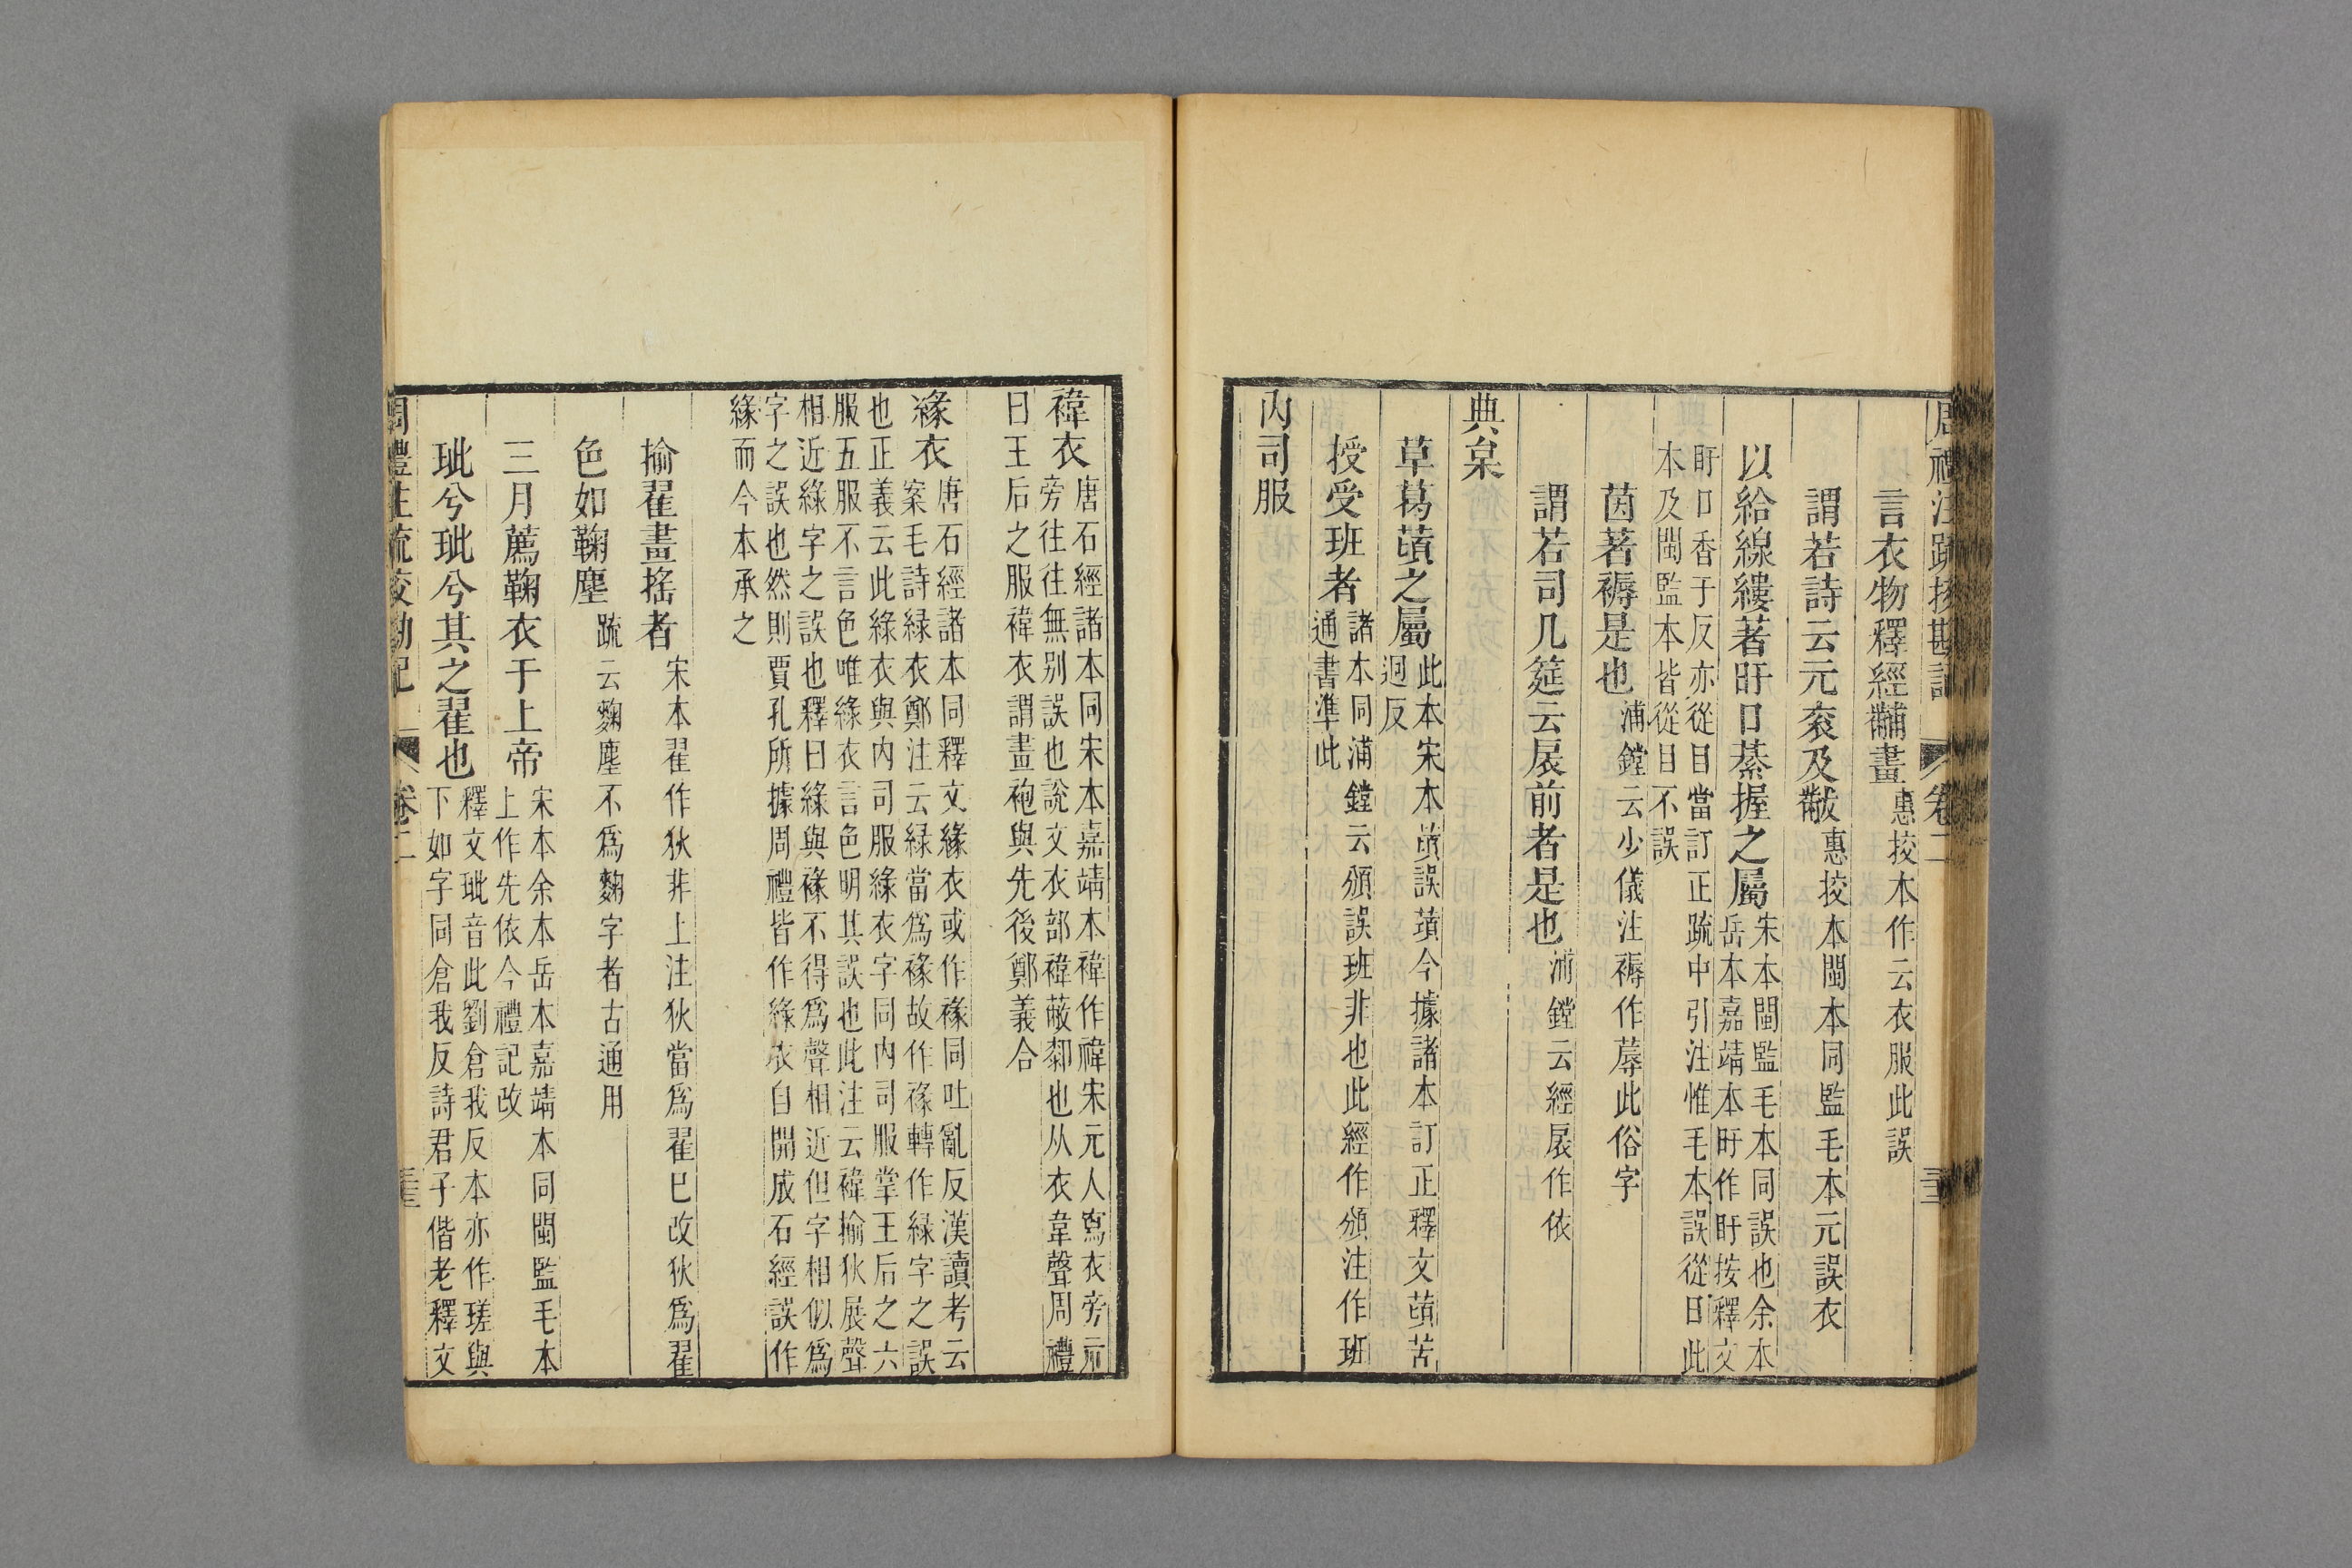 周禮注疏挍勘記 卷二 三
言衣物釋經黼畫惠挍本作云衣服此誤
謂若詩云元衮及黻惠挍本閩本同監毛本元誤衣
以給線縷著旴口綦握之屬宋本閩監毛本同誤也余本
岳本嘉靖本旴作盱按釋文
盱口香于反亦從目當訂正疏中引注惟毛本誤從日此
本及閩監本皆從目不誤
茵著褥是也浦鏜云少儀注褥作蓐此俗字
謂若司几筵云扆前者是也浦鏜云經扆作依
典枲
草葛䔛之屬此本宋本䔛誤蕡今據諸本訂正釋文䔛苦
迥反
授受班者諸本同浦鏜云頒誤班非也此經作頒注作班
通書準此
內司服
褘衣唐石經諸本同宋本嘉靖本褘作禕宋元人寫衣旁示
旁往往無别誤也說文衣部褘蔽厀也从衣韋聲周禮
曰王后之服褘衣謂畫袍與先後鄭義合
緣衣唐石經諸本同釋文緣衣或作褖同吐亂反漢讀考云
案毛詩緑衣鄭注云緑當爲褖故作褖轉作緑字之誤
也正義云此緣衣與內司服緣衣字同內司服掌王后之六
服五服不言色唯緣衣言色明其誤也此注云褘揄狄展聲
相近緣字之誤也釋曰緣與褖不得爲聲相近但字相似爲
字之誤也然則賈孔所據周禮皆作緣衣自開成石經誤作
緣而今本承之
揄翟畫搖者宋本翟作狄非上注狄當爲翟已改狄爲翟
色如鞠塵疏云麴塵不爲麴字者古通用
三月薦鞠衣于上帝宋本余本岳本嘉靖本同閩監毛本
上作先依今禮記改
玼兮玼兮其之翟也釋文玼音此劉倉我反本亦作瑳與
下如字同倉我反詩君子偕老釋文
周禮注疏挍勘記 卷二